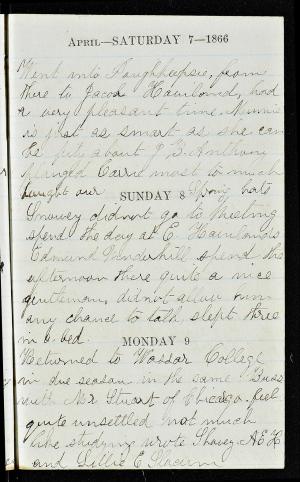 APRIL—SATURDAY 7—1866
Went into Poughkeepsie, from
there to Jacob Haviland, had
a very pleasant time. Minnie
is just as smart as she can
be. about J. B. Anthony
plagued Carrie most to much
bought our Spring hats
SUNDAY 8
Snowey did not go to Meeting
spend the day at E. Havilands
Edmund Underhill spend the
afternoon there quite a nice
gentleman, did not allow him
any chance to talk slept three
in a bed.
MONDAY 9
Returned to Vassar College
in due season in the same Buss
with Mr Stuart of Chicago. feel
quite unsettled not much
like studying wrote A E H
and Lillie E